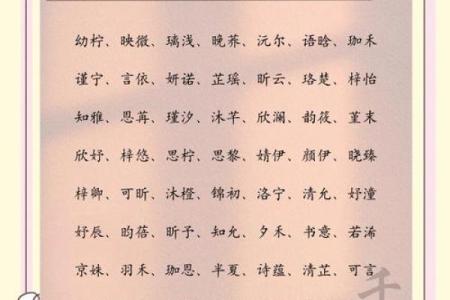 幼柠、映微、璃浅、晚荞、沅尔、语晗、珈禾
谨宁、言依、妍诺、芷瑶、昕云、珞楚、梓怡
知雅、思苒、瑾汐、沐芊、欣澜、韵筱、堇末
欣妤、梓悠、思柠、思黎、婧伊、颜伊、晓臻
梓卿、可昕、沐橙、锦初、洛宁、清允、妤潼
妤辰、昀蓓、昕予、知允、夕禾、书意、若浠
京姝、羽禾、珈恩、半夏、诗蕴、清芷、可言